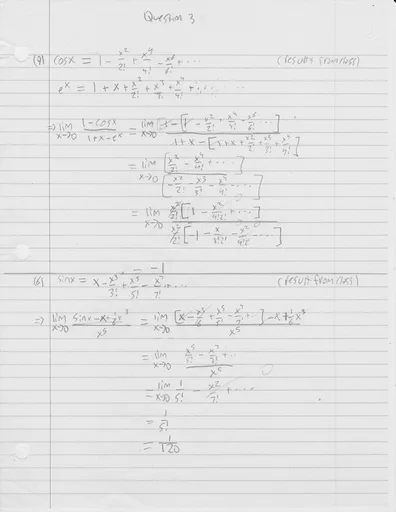 Question 3
(a) cosx = 1 - x²/2! + x⁴/4! - x⁶/6! + ... (results from class)
eˣ = 1 + x + x²/2! + x³/3! + x⁴/4! + ...
⇒ lim x→0 (1-cosx)/(1+x-eˣ) = lim x→0 (1 - [1 - x²/2! + x⁴/4! - x⁶/6! ...])/(1+x - [1+x+x²/2!+x³/3!+x⁴/4!])
= lim x→0 [x²/2! - x⁴/4! + ...]/[-x²/2! - x³/3! - x⁴/4! ...]
= lim x→0 x²/2! [1 - x²/4! + ...]/x²/2! [-1 - x/3! - x²/4! ...]
= -1
(b) sinx = x - x³/3! + x⁵/5! - x⁷/7! + ... (result from class)
⇒ lim x→0 (sinx - x + 1/6 x³)/x⁵ = lim x→0 ([x - x³/6 + x⁵/5! - x⁷/7! + ...] - x + 1/6 x³)/x⁵
= lim x→0 (x⁵/5! - x⁷/7! + ...)/x⁵
= lim x→0 1/5! - x²/7! + ... 0
= 1/5!
= 1/120